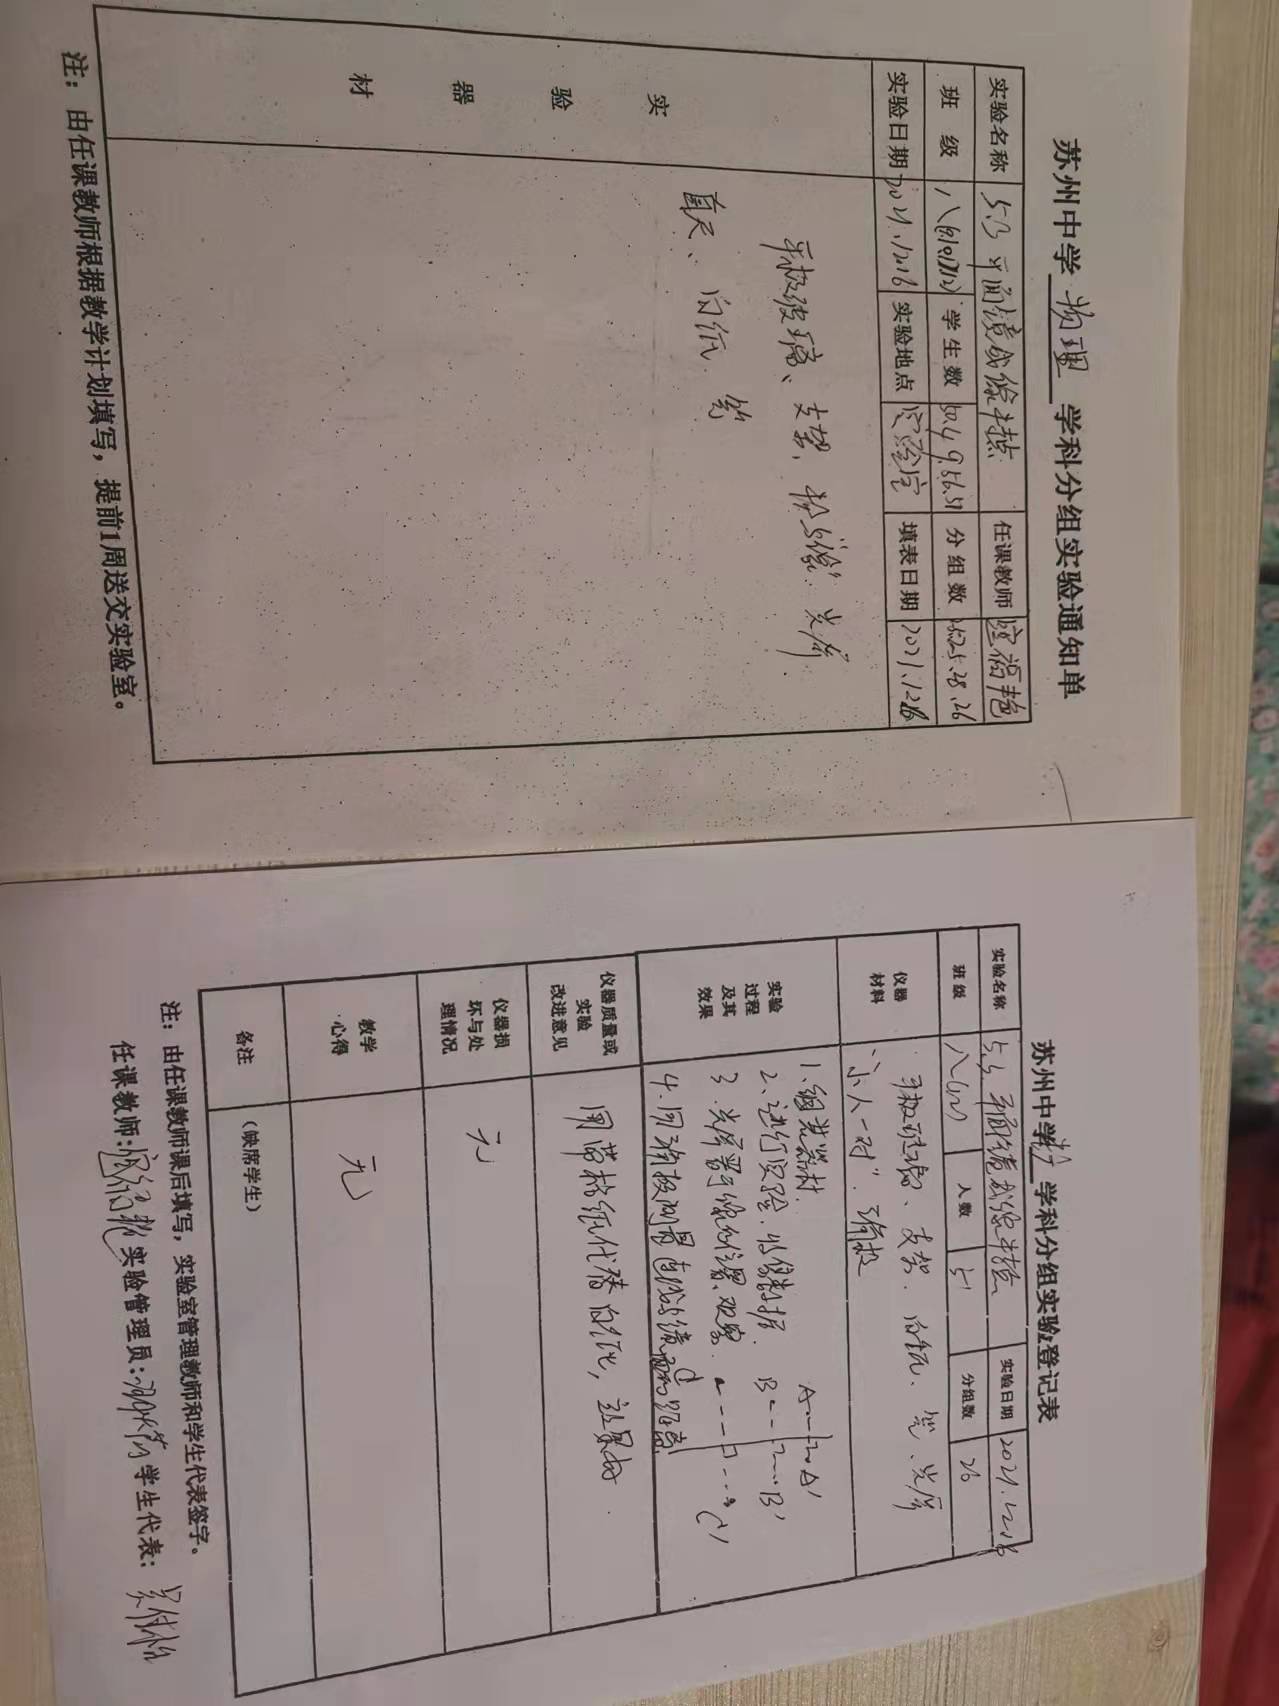 苏州中学 物理 学科分组实验通知单
实验名称 5.3 平面镜成像特点 任课教师
班级 学生数 50.49.56.51 分组数 25.25.28.26
实验日期 2021.12.16 实验地点 实验室 填表日期 2021.12.16
实验器材
平板玻璃、支架、 光屏
直尺、白纸、笔
注：由任课教师根据教学计划填写，提前1周送交实验室。
苏州中学 学科分组实验登记表
实验名称 平面镜成像特点 实验日期 2021.12.16
班级 八(12) 人数 51 分组数 26
仪器材料
平板玻璃、支架、白纸、笔、光屏
"小人一对"、
实验过程及其效果
1.组装器材.
2.进行实验.收集数据.
3.光屏置于像的位置、观察.
4.用 测量 距离
A A'
B B'
C C'
仪器质量或实验改进意见
用 格纸代替白纸, 效果好.
仪器损坏与处理情况
无
教学心得
无
备注
（缺席学生）
注：由任课教师课后填写，实验室管理教师和学生代表签字。
任课教师： 实验管理员： 学生代表：